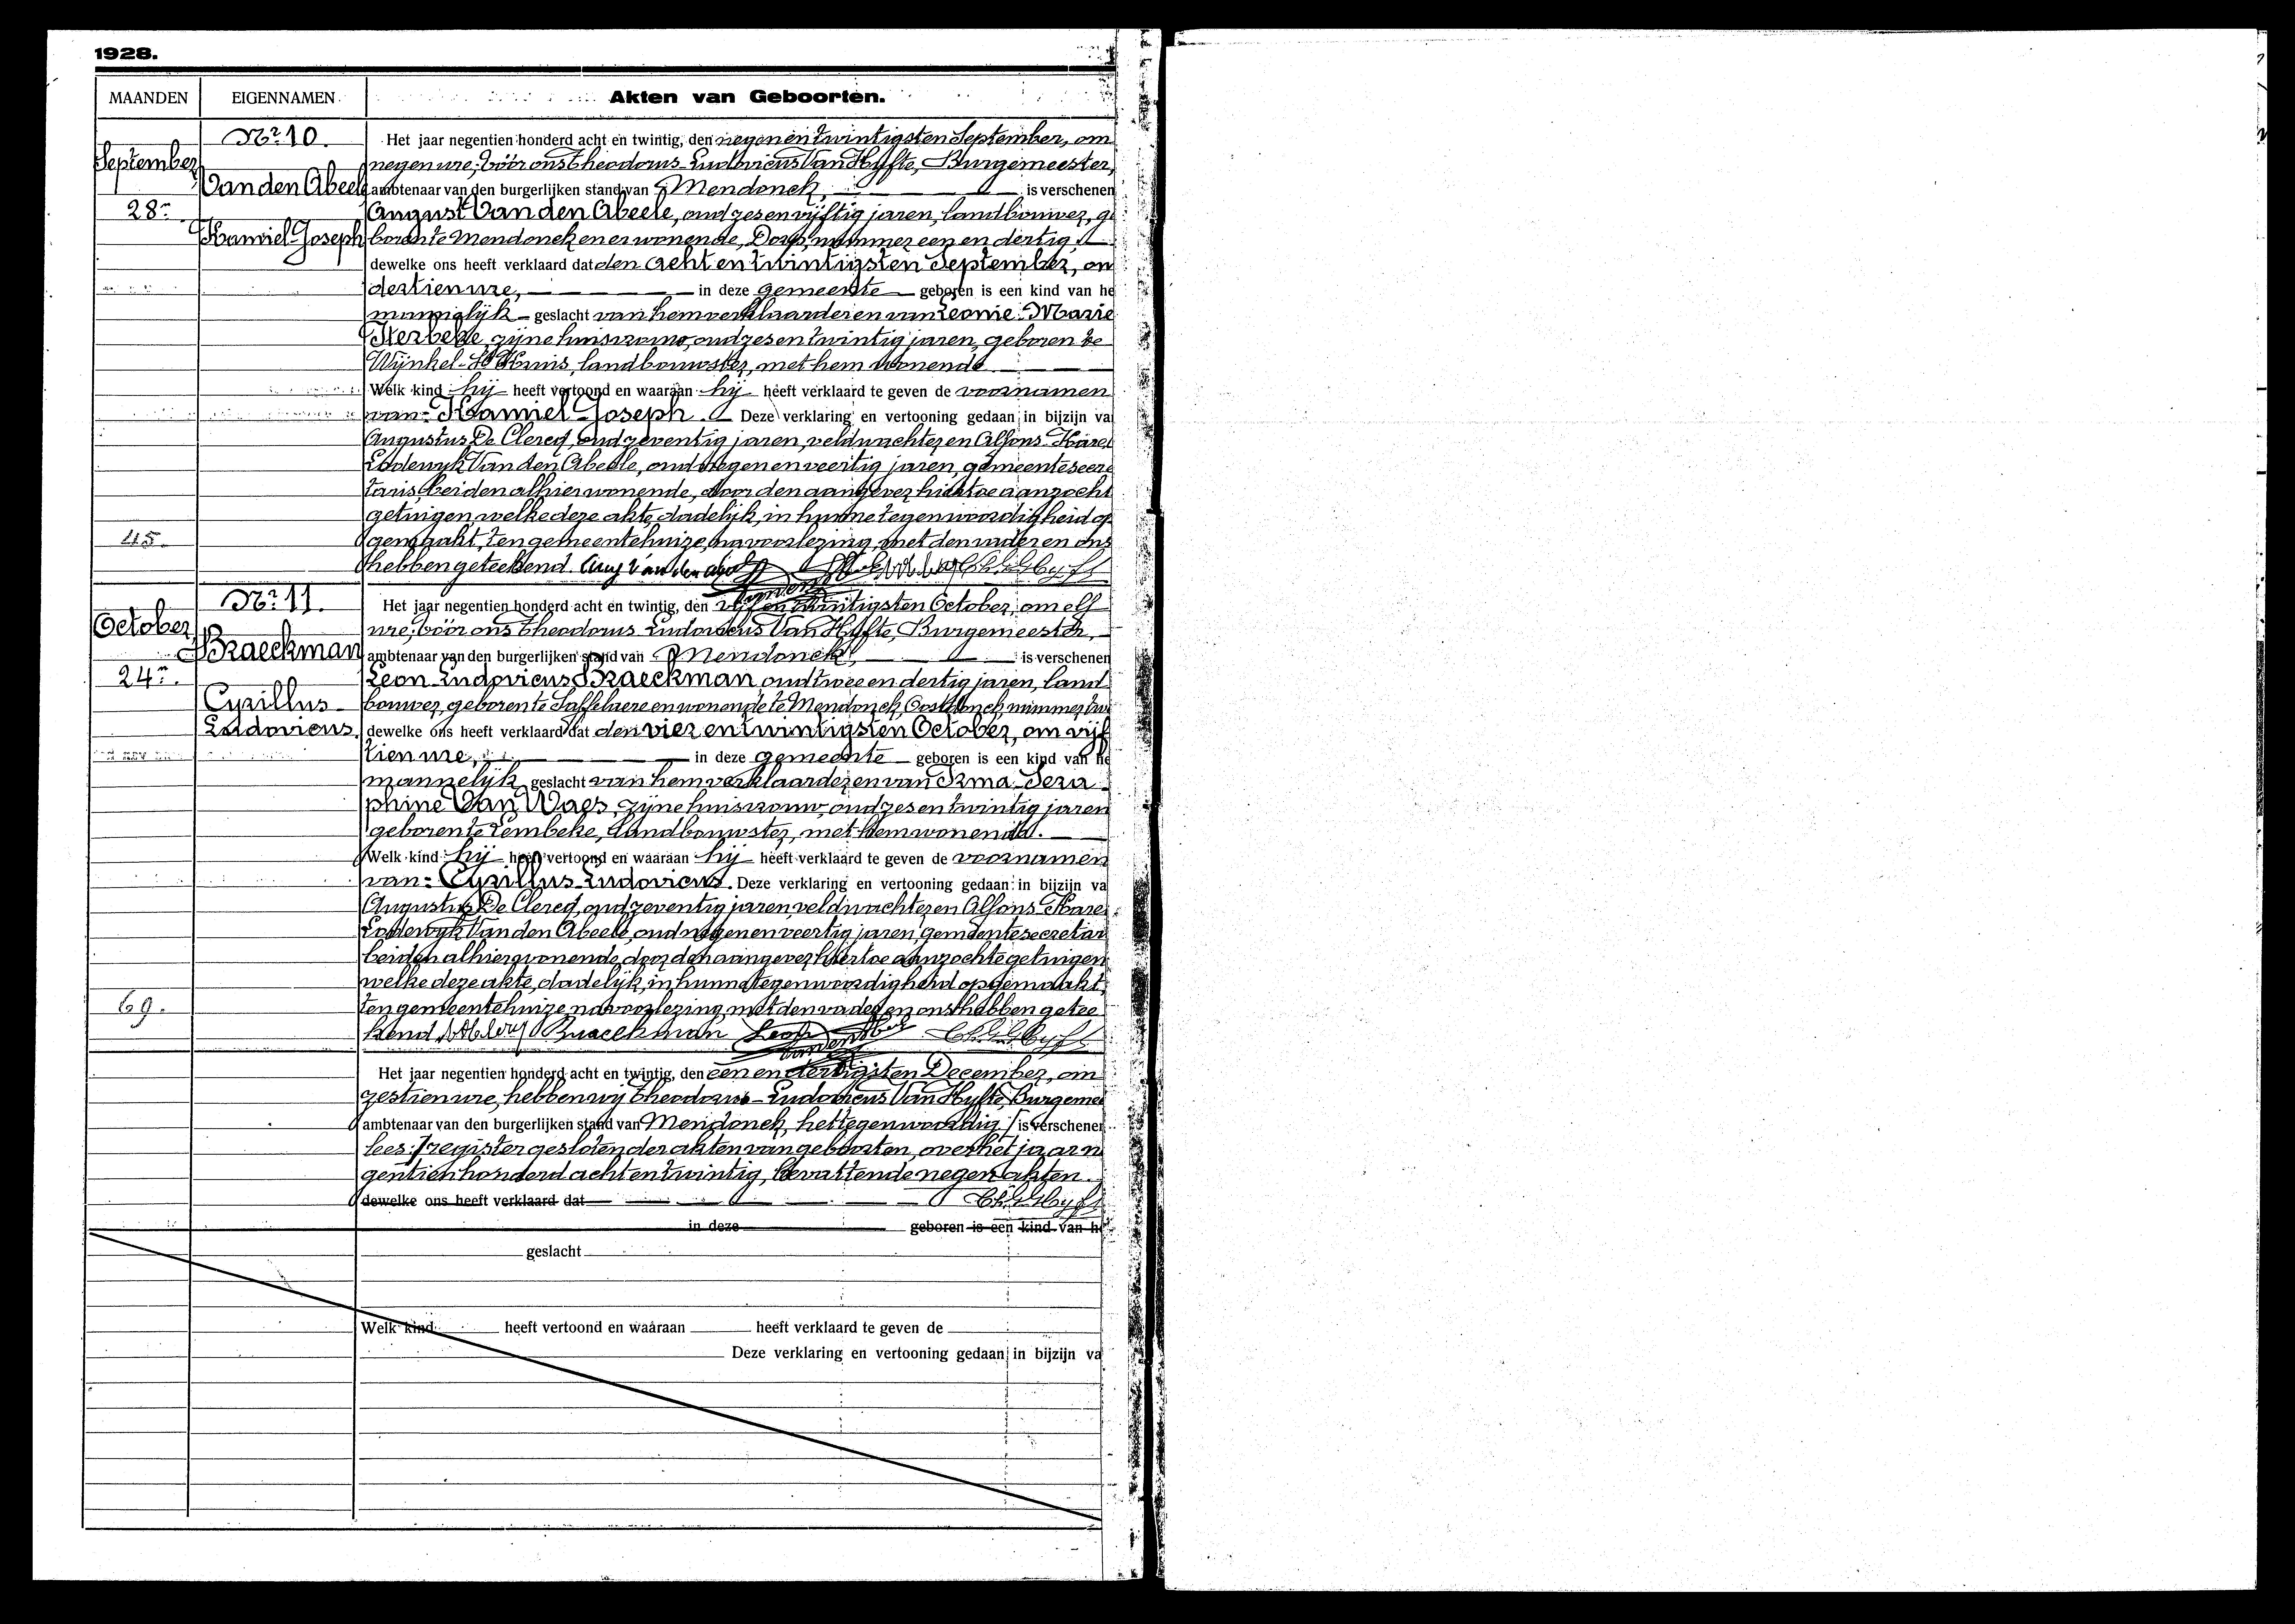 1928.
MAANDEN EIGENNAMEN Akten van Geboorten.
Nr. 10. Het jaar negentien honderd acht en twintig, den negenentwintigsten September, om
September negen ure; vóór ons Theodorus-Ludovicus Van Hyfte, Burgemeester,
Van den Abeele ambtenaar van den burgerlijken stand van Mendonck, is verschenen
28n August Van den Abeele, oud zes en vijftig jaren, landbouwer, ge
Kamiel-Joseph boren te Mendonck en er wonende, Dorp, nummer een en dertig,
dewelke ons heeft verklaard dat den acht en twintigsten September, om
dertien ure, in deze gemeente geboren is een kind van he
mannelijk geslacht van hem verklaarder en van Leonie-Marie
zijne huisvrouw, oud zes en twintig jaren, geboren te
Wijnkel-St Kruis, landbouwster, met hem wonende
Welk kind hij heeft vertoond en waaraan hij heeft verklaard te geven de voornamen
van: Kamiel-Joseph. Deze verklaring en vertooning gedaan in bijzijn va
Augustus De Clercq, oud zeventig jaren, veldwachter en Alfons-Karel
Lodewyk Van den Abeele, oud negen en veertig jaren, gemeentesecre
taris, beiden alhier wonende, door den aangever hiertoe aanzocht
getuigen, welke deze akte, dadelijk, in hunne tegenwoordigheid op
45. gemaakt, ten gemeentehuize, na voorlezing, met den vader en ons
hebben geteekend. Aug Van den Abeele
Nr. 11. Het jaar negentien honderd acht en twintig, den vijf en twintigsten October, om elf
October ure; vóór ons Theodorus-Ludovicus Van Hyfte, Burgemeester,
Braeckman ambtenaar van den burgerlijken stand van Mendonck, is verschenen
24n. Leon-Ludovicus Braeckman, oud twee en dertig jaren, land
Cyrillus- bouwer, geboren te Saffelaere en wonende te Mendonck, Oostdonck, nummer
Ludovicus. dewelke ons heeft verklaard dat den vier en twintigsten October, om vijf
tien ure, in deze gemeente geboren is een kind van he
mannelijk geslacht van hem verklaarder en van Irma-Sera
phine Van Waes, zijne huisvrouw, oud zes en twintig jaren
geboren te Lembeke, landbouwster, met hem wonende.
Welk kind hij heeft vertoond en waaraan hij heeft verklaard te geven de voornamen
van: Cyrillus-Ludovicus. Deze verklaring en vertooning gedaan in bijzijn va
Augustus De Clercq, oud zeventig jaren, veldwachter en Alfons-Karel
Lodewyk Van den Abeele, oud negen en veertig jaren, gemeentesecretar
beiden alhier wonende, door den aangever hiertoe aanzochte getuigen
welke deze akte, dadelijk, in hunne tegenwoordigheid opgemaakt,
69. ten gemeentehuize, na voorlezing, met den vader en ons hebben getee
kend. Braeckman Leon
Het jaar negentien honderd acht en twintig, den een en dertigsten December, om
zestien ure, hebben wij Theodorus-Ludovicus Van Hyfte, Burgemee
ambtenaar van den burgerlijken stand van Mendonck, het tegenwoordig / is verschenen
lees: / register gesloten der akten van geboorten, over het jaar n
gentien honderd acht en twintig, bevattende negen akten.
dewelke ons heeft verklaard dat
in deze geboren is een kind van he
geslacht
Welk kind heeft vertoond en waaraan heeft verklaard te geven de
Deze verklaring en vertooning gedaan in bijzijn va